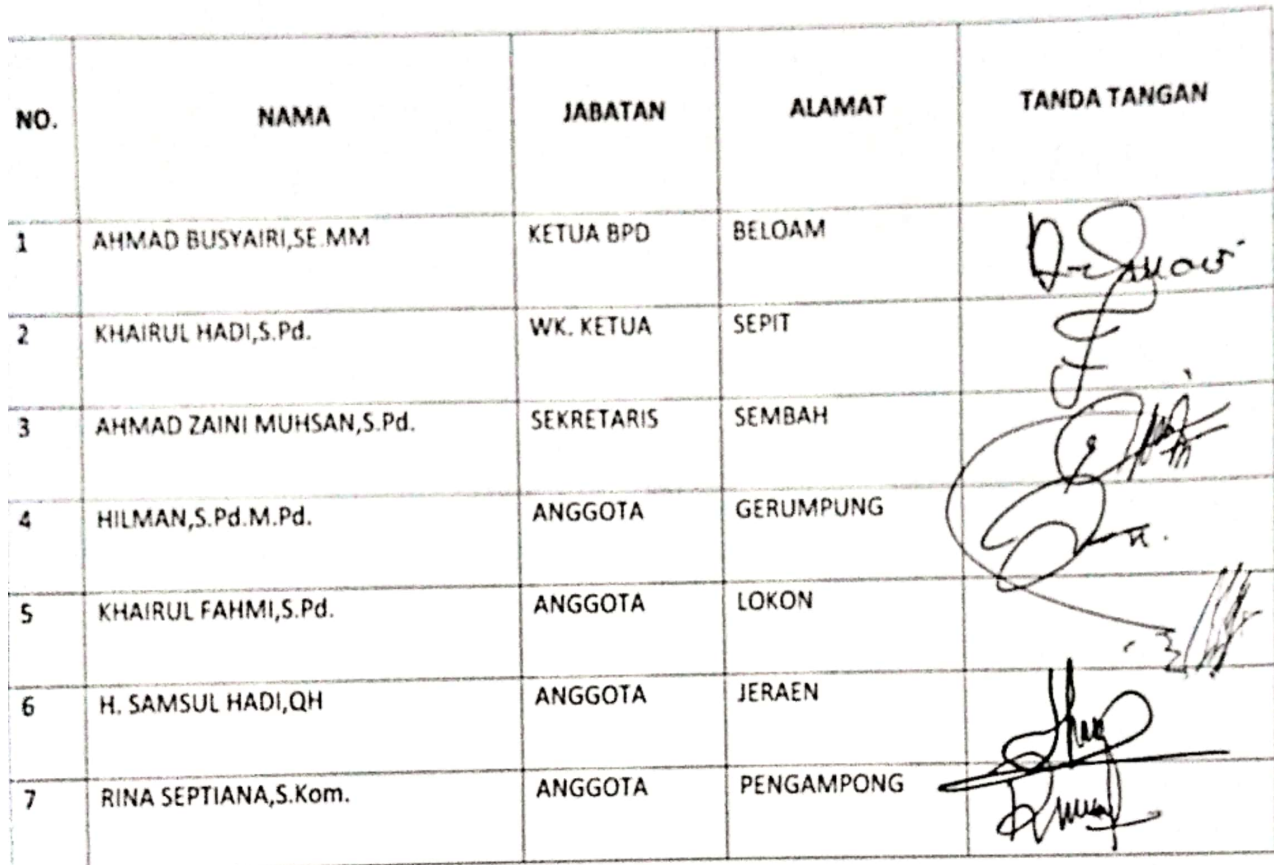 NO. NAMA JABATAN ALAMAT TANDA TANGAN
1 AHMAD BUSYAIRI,SE.MM KETUA BPD BELOAM
2 KHAIRUL HADI,S.Pd. WK. KETUA SEPIT
3 AHMAD ZAINI MUHSAN,S.Pd. SEKRETARIS SEMBAH
4 HILMAN,S.Pd.M.Pd. ANGGOTA GERUMPUNG
5 KHAIRUL FAHMI,S.Pd. ANGGOTA LOKON
6 H. SAMSUL HADI,QH ANGGOTA JERAEN
7 RINA SEPTIANA,S.Kom. ANGGOTA PENGAMPONG